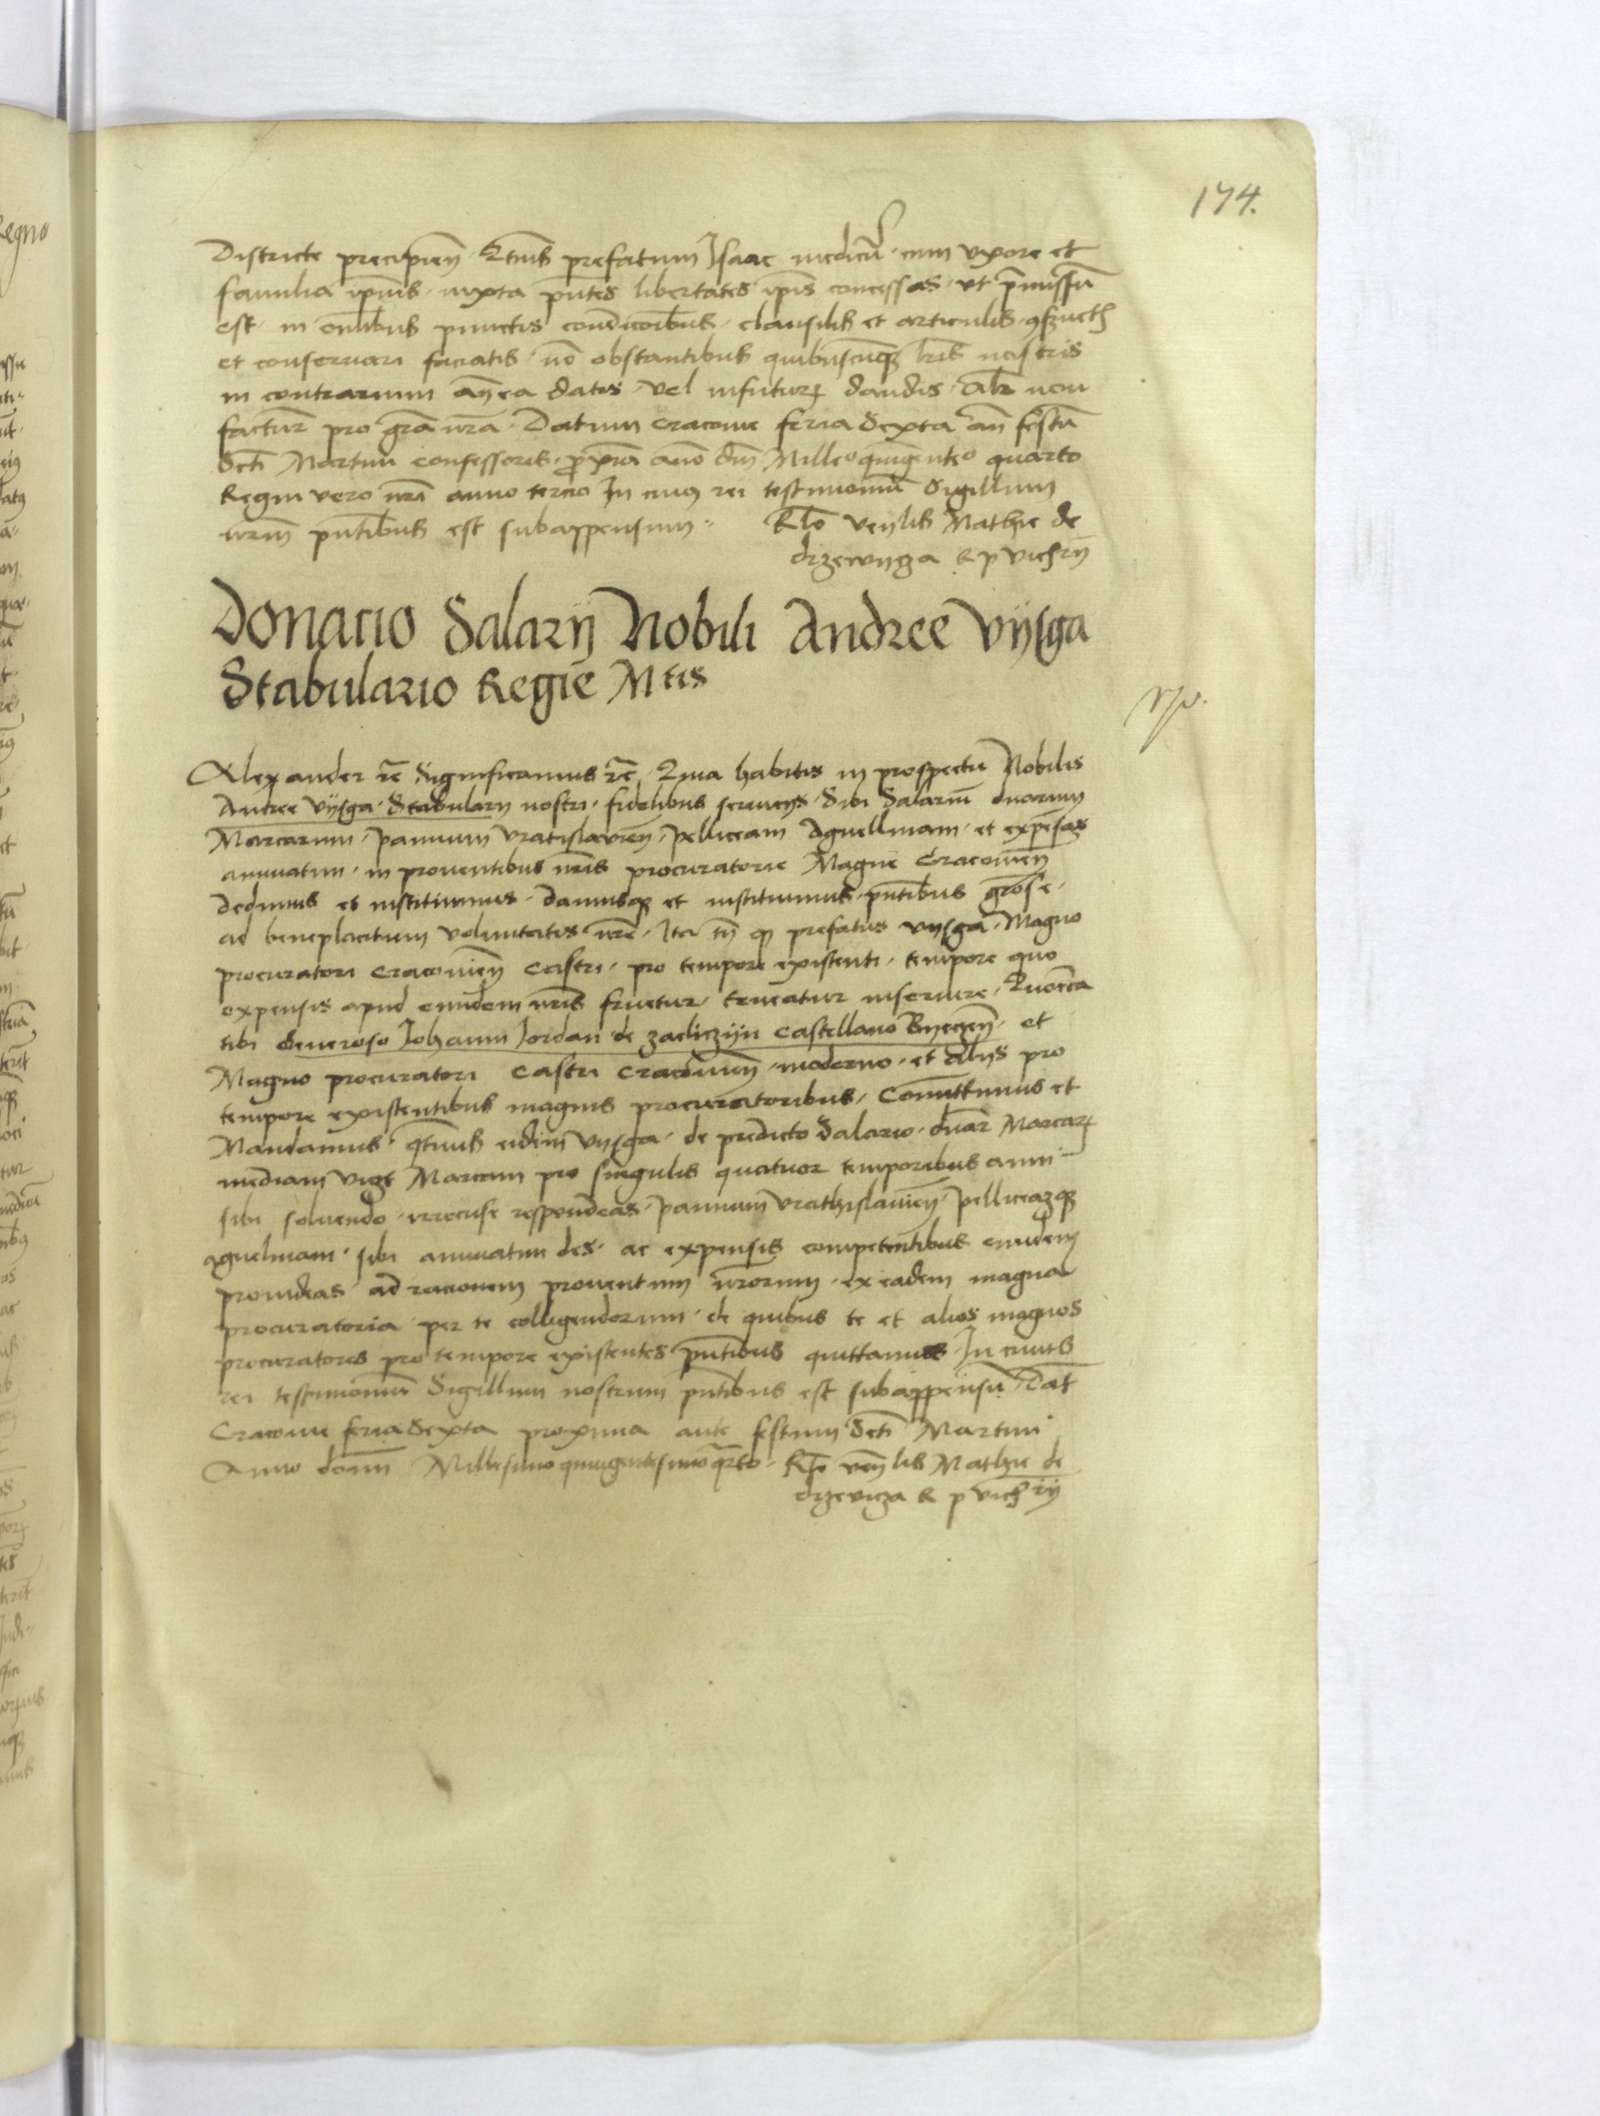 174.
Districte precipien̄ Qtenus prefatum Isaac medicū cum vxore et
familia ipsius iuxta pn̄tes libertates ipīs concessas vt p̄missū
est in om̄ibus punctis condicōibus clausulis et articulis
et conseruari faciatis nō obstantibus quibuscūq lr̄is nostris
in contrarium antea datis vel infuturū dandis Alr̄ non
facturi pro grā nrā Datum cracouie feria Sexta an̄ festū
Scti Martini confessoris proxīa anō dnī Milleo quingenteo quarto
Regni vero nrī anno tercio In cuius rei testimoniū Sigillum
nrm̄ pn̄tibus est subappensum Rlo ven̄lis Mathie de
drzewycza R p vicen̄
Donacio Salarij Nobili Andree Vyſga
Stabulario Regie Mtis
Alexander rc̄ Significamus rc̄ Quia habitis in prospectu Nobilis
Andree Vyſga Stabularij nostri fidelibus seruicijs Sibi Salariū duarum
Marcarum pannum vratislauien̄ pelliceam Agnellinam et expēsas
annuatim in prouentibus nrīs procuratorie Magne Cracouien̄
Dedimus et instituimus Damusq et instituimus pn̄tibus grōse
ad beneplacitum voluntatis nrē Ita tn̄ q prefatus vyſga Magno
procuratori cracouien̄ Castri pro tempore existenti tempore quo
expensis apud eundem nrīs fruetur teneatur inseruire Quocca
tibi Generoso Iohanni Iordan de zacliczyn Castellano Byeczen̄ et
Magno procuratori Castri Cracouien̄ moderno et Alijs pro
tempore existentibus magnis procuratoribus Com̄ittimus et
Mandamus qtenus eidem vyſga de predicto Salario duar̄ Marcar̄
mediam vigt Marcam pro singulis quatuor temporibus anni
sibi soluendo irrecuse respondeas pannum vrathislauien̄ pelliceazq
agnelinam sibi annuatim des ac expensis competentibus eundem
prouideas ad racionem prouentuum nrōrum ex eadem magna
procuratoria per te colligendorum de quibus te et alios magnos
procuratores pro tempore existentes pn̄tibus quittamus In cuius
rei testimoniū Sigillum nostrum pn̄tibus est subappensū Dat
Cracouie feria Sexta proxima ante festum Scti Martini
Anno domī Millesimo quingentesimo qrto Rlo ven̄lis Mathie de
drzevicza R p vicen̄